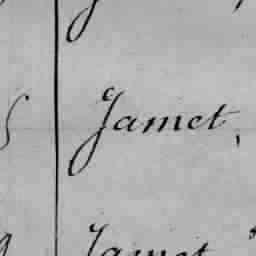 Jamet,
Jamet